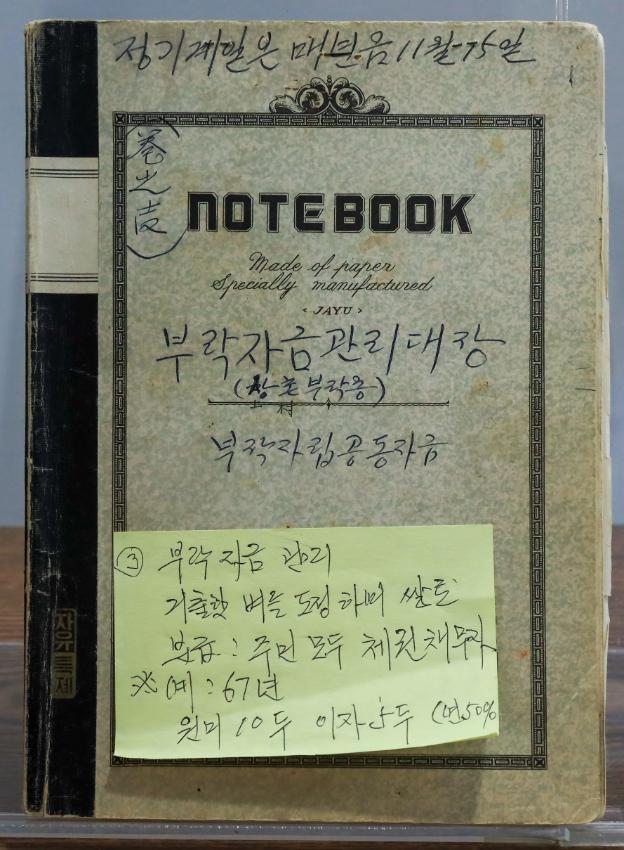 정기계일은 매년음 11월 15일
(卷之貳)
NOTEBOOK
Made of paper
Specially manufactured
‹ JAYU ›
부락자금관리대장
부락용)
村
부락자립공동자금
③ 부락 자금 관리
벼를 도정하며 쌀로
보급 : 주민 모두 채권채무자
※ 예 : 67년
원미 10두 이자 5두 (년50%
자유특제